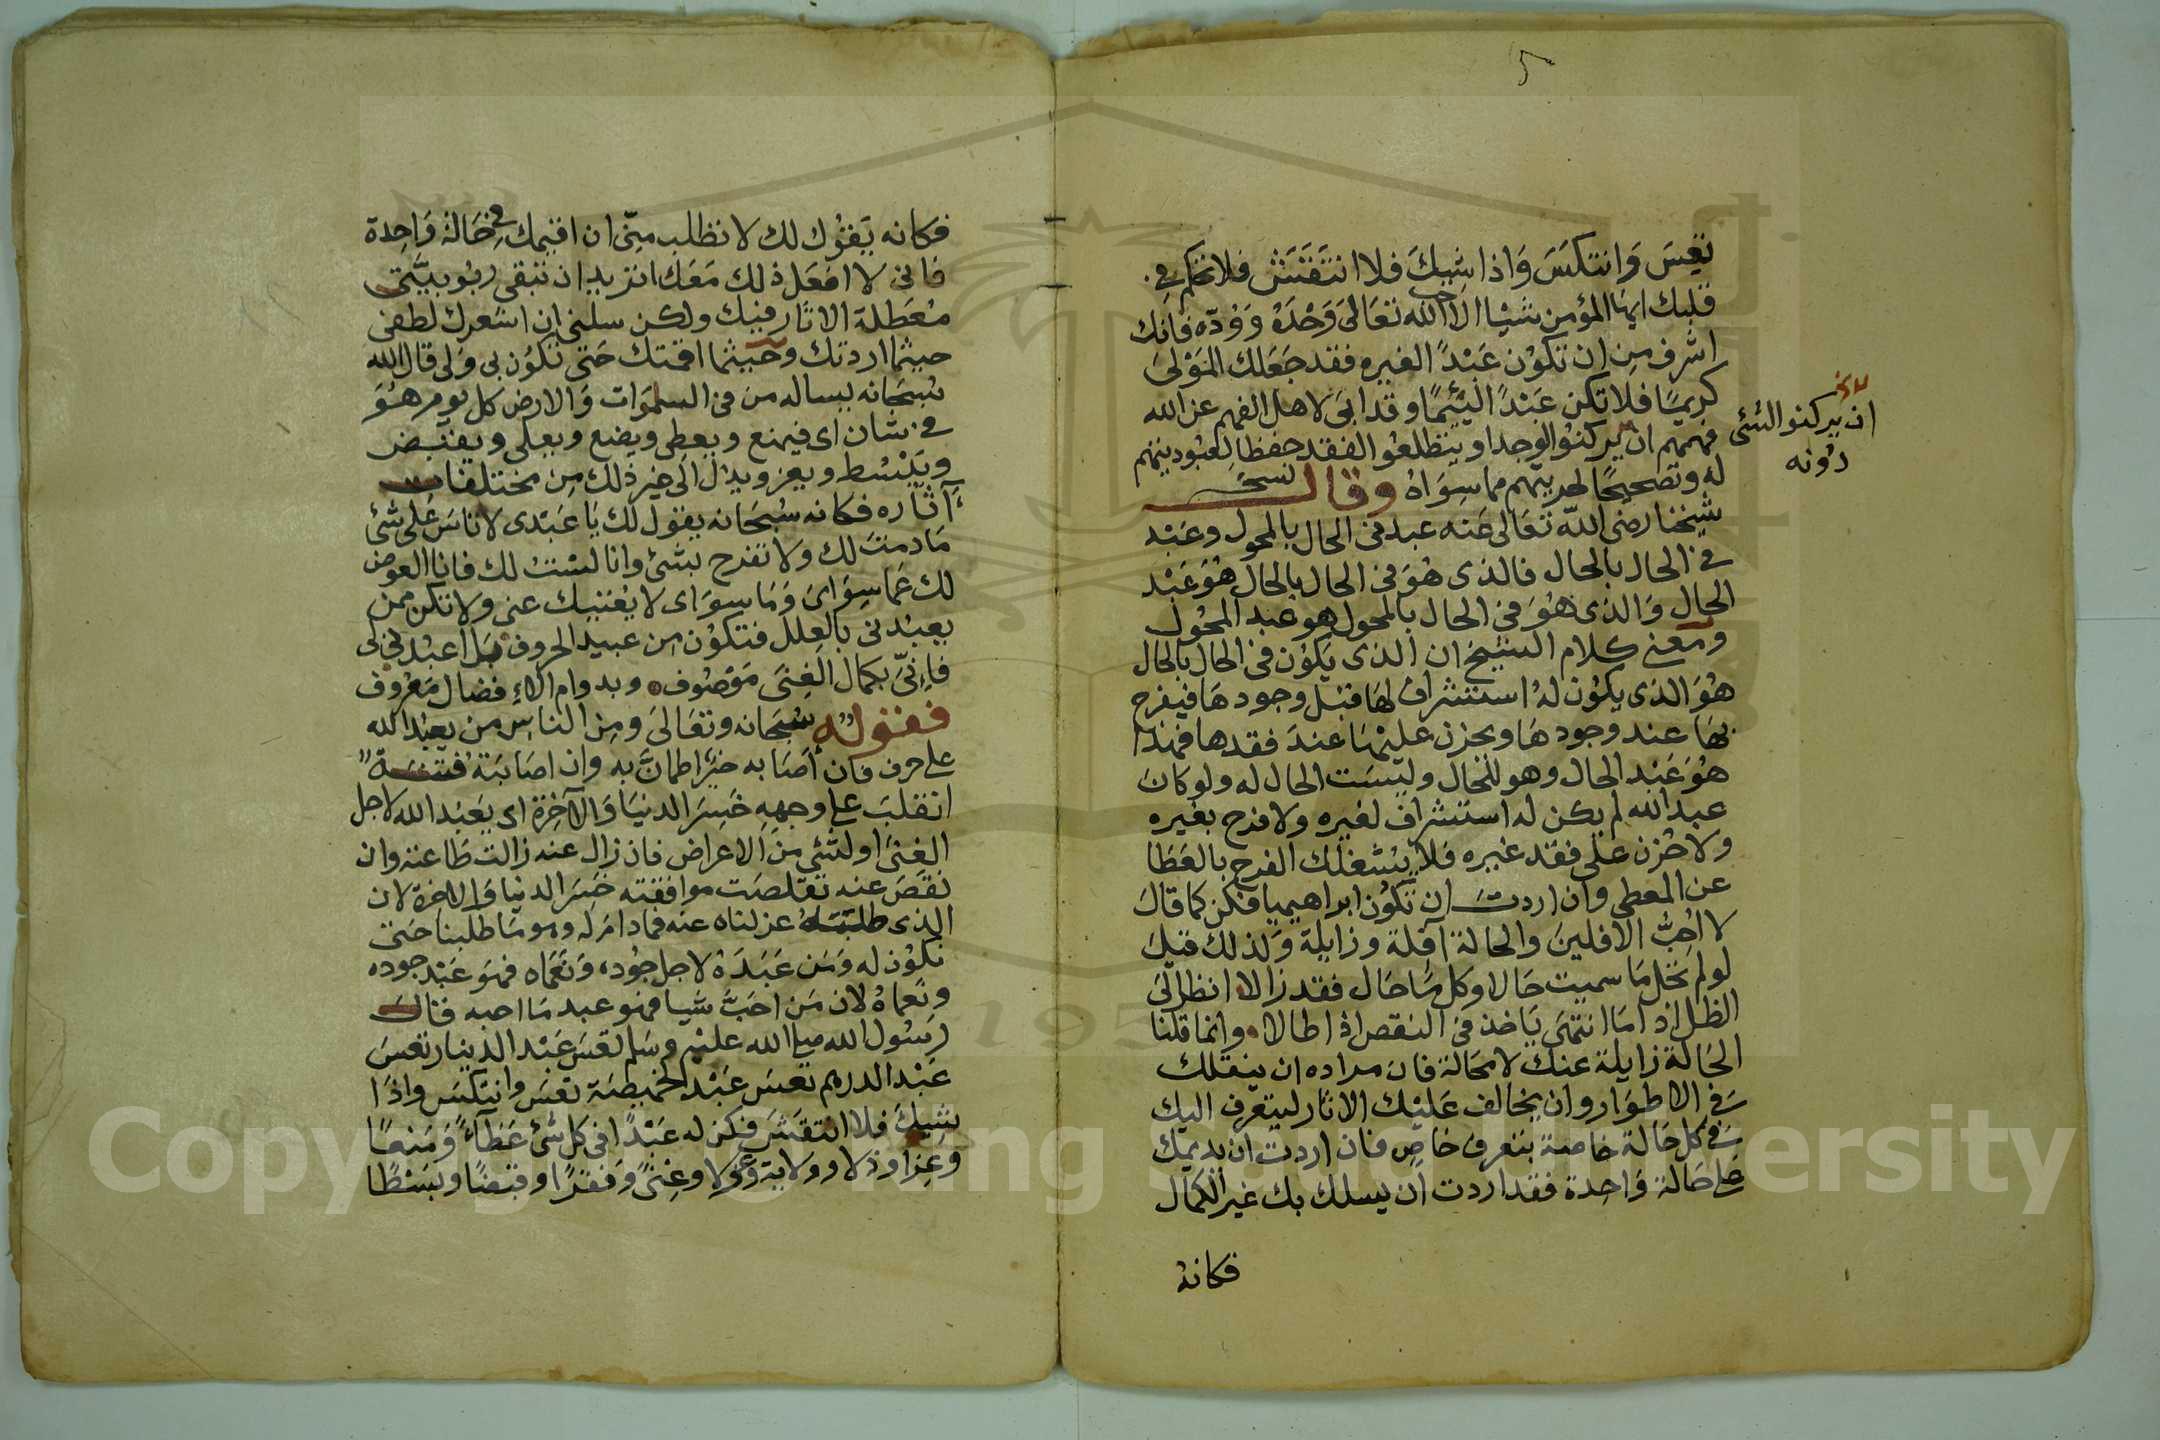 تعِسَ وَانتكسَ وَاذا شِيكَ فلا انتَقَشَ فلا تحكم في
قلبك ايها المؤمن شيْا الا حب الله تعَالىَ وَحْدَهُ وَوُدّه فانك
اشرف مِن ان تكوُن عَبْدًا لغيره فقد جَعَلك المَوْلىَ
كريمًا فلا تكن عَبْدًا لئيمًا وقد ابَى لاهل الفهم عن الله
فهمهم ان يركنوُا لوجد او يتطلعوُا لفقد حفظا لعبُوديتهم
له وتصْحيحًا لحريتهم مما سِوَاهُ وقال
نسخة
ان يركنوا لشئ
دُونه
شيخنا رضى الله تعَالى عَنه عبد فى الحال بالمحول وعَبْد
في الحال بالحال فالذى هُوَ فى الحال بالحال هُوَ عَبْد
الحال وَالذى هُوَ فى الحال بالمحول هو عبد المحُول
ومعنى كلام الشيخ ان الذى يكوُن فى الحال بالحال
هُوَ الذى يكوُن لهُ استشراف لهَا قبْل وجودهَا فيفرح
بهَا عند وجودهَا ويحزن عليْهَا عندَ فقدها فهٰذا
هُوَ عَبْد الحال وهو للحال وليْسَت الحال له ولو كانَ
عبد الله لم يكن له استشراف لغيره ولا فرح بغيره
ولا حُزن على فقد غيره فلا يشغلك الفرح بالعَطا
عن المعطى وان اردت ان تكوُن ابراهيميا فكن كما قالَ
لا احُبُّ الافلينَ والحالة آفلة وزايلة وَلذلك قيلَ
لو لم تحُل ما سميت حَالا وكل مَا حَال فقد زالا انظر الَى
الظل اذا مَا انتهَى يَاخذ فى النقص اذا طالا وانما قلنا
الحَالة زايلة عنك لا محَالة فان مراده ان ينقلك
فى الاطوَار وان يخالف عَليْك الاثار ليتعرف اليك
فى كل حَالة خاصة بتعرف خاص فان اردت ان يديمك
على حَالة وَاحِدة فقد اردت ان يسلك بك غير الكمال
فكانهُ
فكانه يَقوُل لك لا تطلب مِنّى ان اقيمك فى حَالة وَاحِدة
فانى لا افعَل ذلك مَعَك اتريد ان تبقى ربوُبيَّتى
مُعَطلة الاثار فيك ولكن سلنى ان اشعرك لطفى
حيثما اردتك وحَيثما اقمتك حَتى تكوُن بى وَلى قال الله
سُبحَانه يساله من فى السمٰوَات وَالارض كل يوم هُوَ
فى شان اى فيمنع ويعطى ويضع ويعلى ويقبض
ويبْسُط ويعز ويذل الى غير ذلك مِن مختلفات
آثاره فكانه سُبحَانه يقول لك يَا عَبْدى لا تاسَ على شئ
مَا دمتَ لك ولا تفرح بشئ وانا لسْتُ لك فانا العوض
لك عَما سِوَاىَ وَمَا سِوَاى لا يُغنيك عنى ولا تكن ممن
يعبْدنى بالعِلل فتكوُن مِن عبيد الحروف بَل اعبُدنى لى
فإنىّ بكمال الغِنَى مَوْصُوف وبدوام الإِفضال مَعْروف
فقولُه سُبحَانه وتعَالىَ ومِن الناس من يعبُد الله
على حرف فان أصَابه خيرٌ اطمانَّ به وان اصَابَتهُ فتنَةٌ
انقلبَ على وجههِ خَسِرَ الدنيَا وَالآخرَة اى يَعبْد الله لاجل
الغِنَى او لشئ مِنَ الاعراض فان زال عنه زالت طَاعته وان
نقصَ عنه تقلصَت موافقته خسَرَ الدنيا وَالاخرة لان
الذى طلبَهُ عزلناه عنه فما دامَ له وهو مَا طلبنا حَتى
نكوُن له وَمَن عَبَدَهُ لاجل جُوده وَنعَمَاه فهوَ عَبْد جوده
ونعماهُ لان مَن احَبَّ شَيا فهو عبد مَا احبه قالَ
رسُول الله صلى الله عليْه وسَلم تعَسَ عَبْد الدينار تعسَ
عَبْد الدرهم تعسَ عَبْد الخميصَة تعسَ وانتكسَ واذَا
شِيكَ فلا انتقَشَ فكن له عَبْدًا فى كل شئ عَطَآءً وَمَنعًا
وعِزا وذلا وولاية وعزلا وغنىً وَفقرًا وقبْضًا وبَسْطًا